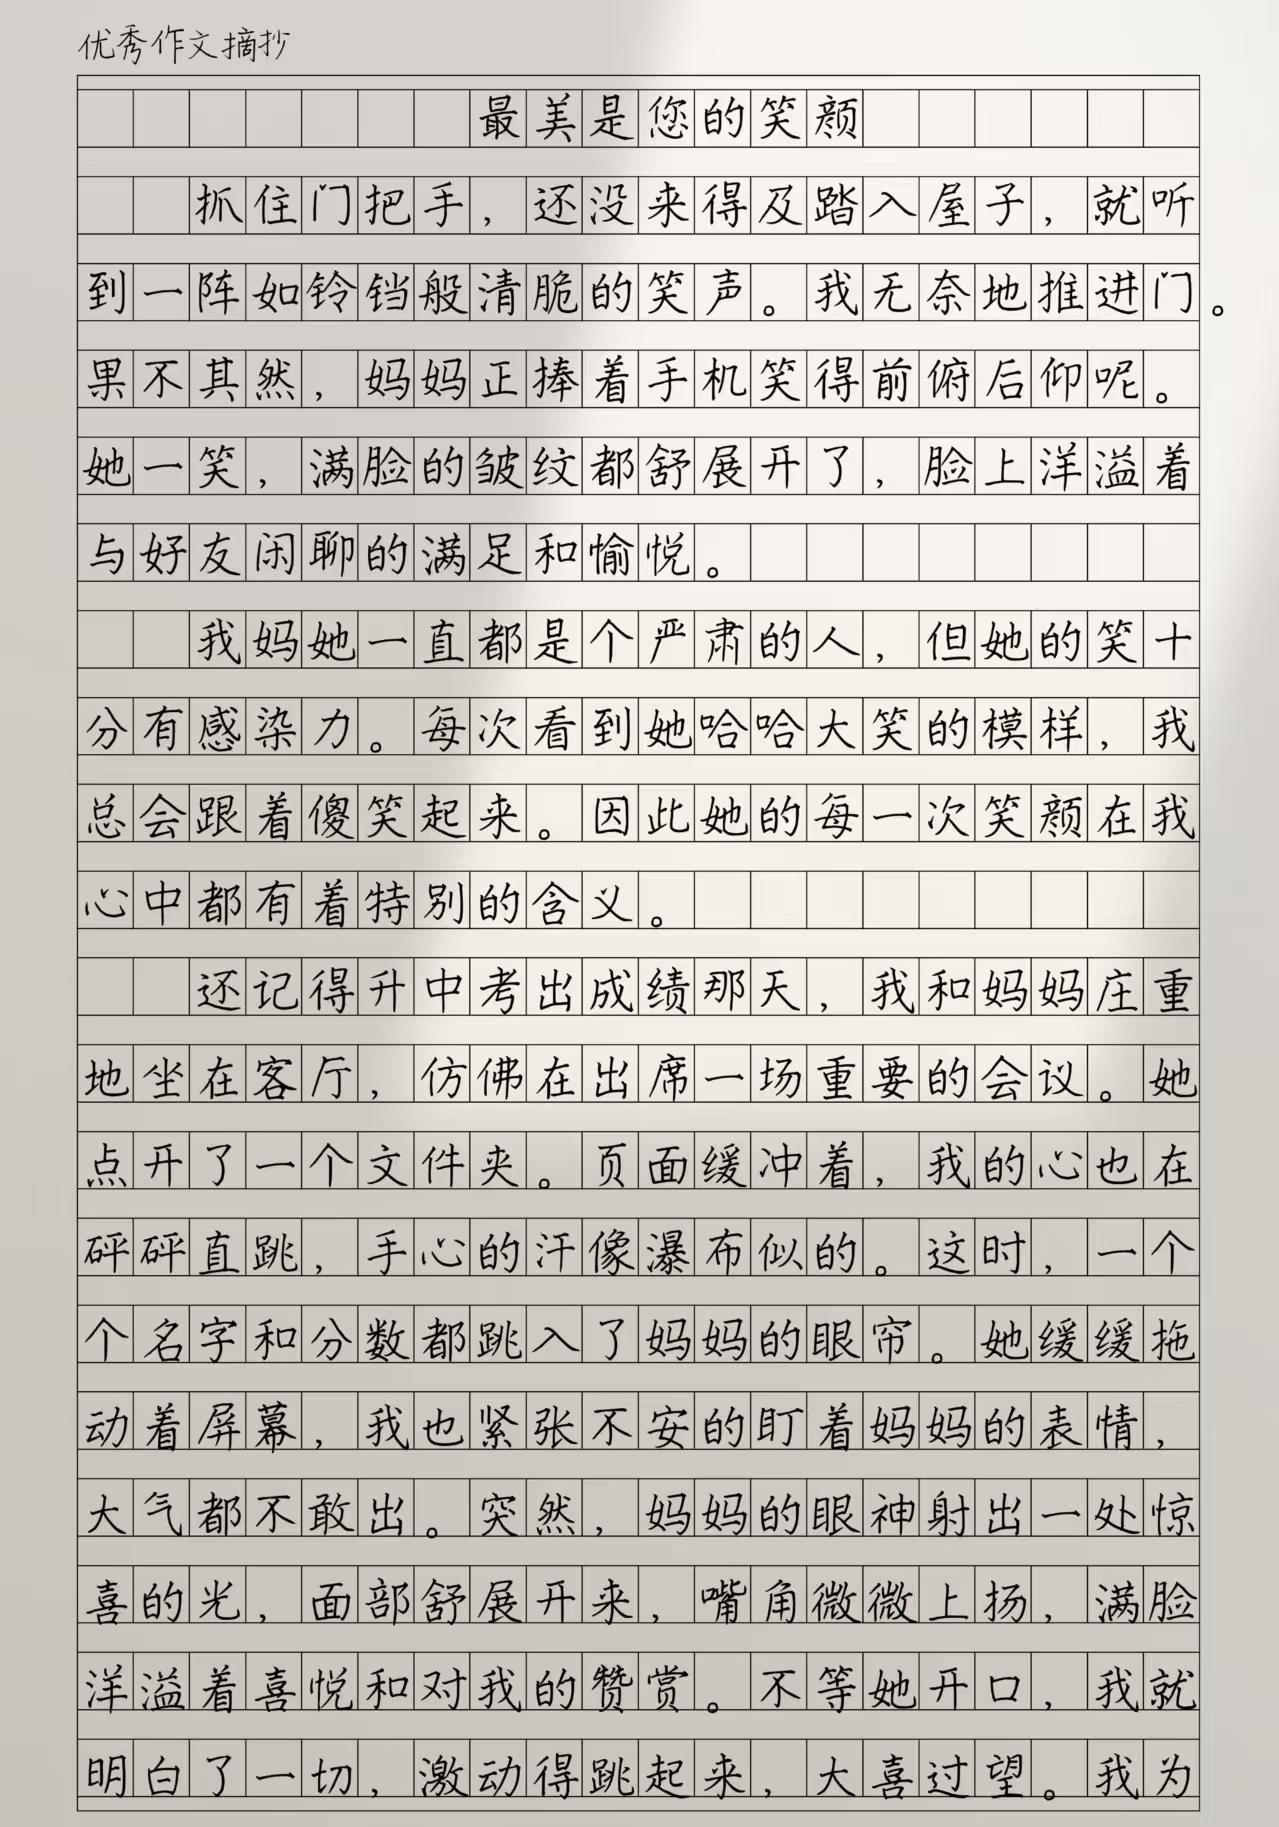 优秀作文摘抄
最美是您的笑颜
抓住门把手，还没来得及踏入屋子，就听
到一阵如铃铛般清脆的笑声。我无奈地推进门。
果不其然，妈妈正捧着手机笑得前俯后仰呢。
她一笑，满脸的皱纹都舒展开了，脸上洋溢着
与好友闲聊的满足和愉悦。
我妈她一直都是个严肃的人，但她的笑十
分有感染力。每次看到她哈哈大笑的模样，我
总会跟着傻笑起来。因此她的每一次笑颜在我
心中都有着特别的含义。
还记得升中考出成绩那天，我和妈妈庄重
地坐在客厅，仿佛在出席一场重要的会议。她
点开了一个文件夹。页面缓冲着，我的心也在
砰砰直跳，手心的汗像瀑布似的。这时，一个
个名字和分数都跳入了妈妈的眼帘。她缓缓拖
动着屏幕，我也紧张不安的盯着妈妈的表情，
大气都不敢出。突然，妈妈的眼神射出一处惊
喜的光，面部舒展开来，嘴角微微上扬，满脸
洋溢着喜悦和对我的赞赏。不等她开口，我就
明白了一切，激动得跳起来，大喜过望。我为